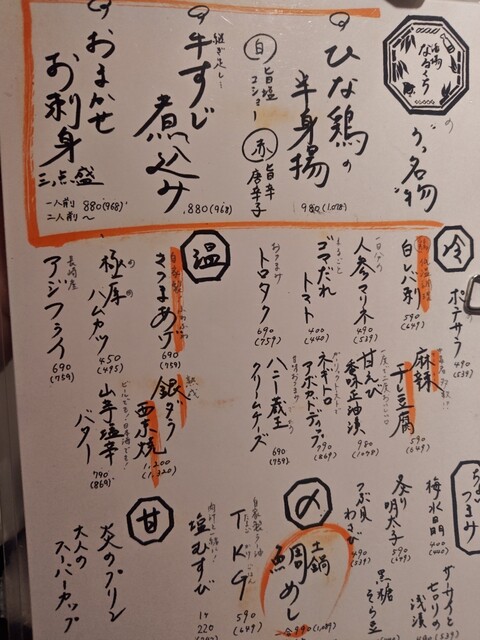 酒場
なるくら
の
三つの名物
ひな鶏の
半身揚
980(1,078)
白 旨塩コショー
赤 旨辛唐辛子
継ぎ足し
牛すじ
煮込み
880(968)
おまかせ
お刺身
三点盛
一人前 880(968)
二人前~
冷
ポテサラ
490(539)
鶏 低温調理
白レバ刺
590(649)
麻辣
干し豆腐
590(649)
人参マリネ
490(539)
甘えび
香味正油漬
980(1,078)
まるごと
ゴマだれ
トマト
400(440)
ネギトロ
アボカドディップ
790(869)
おつまみ
トロタク
690(759)
ハニー蔵王
クリームチーズ
690(759)
温
自家製
さつまあげ
690(759)
銀だら
西京焼
1,200(1,320)
極厚
ハムカツ
450(495)
山芋塩辛
バター
790(869)
長崎産
アジフライ
690(759)
つまみ
梅水晶
400(440)
ササミと
セロリの
浅漬
炙り
明太子
590(649)
つぶ貝
わさび
490(539)
黒糖
そら豆
〆
土鍋
鯛めし
自家製だし醤油
TKG
590(649)
塩むすび
1ケ
220
甘
炎のプリン
大人の
スーパーカップ